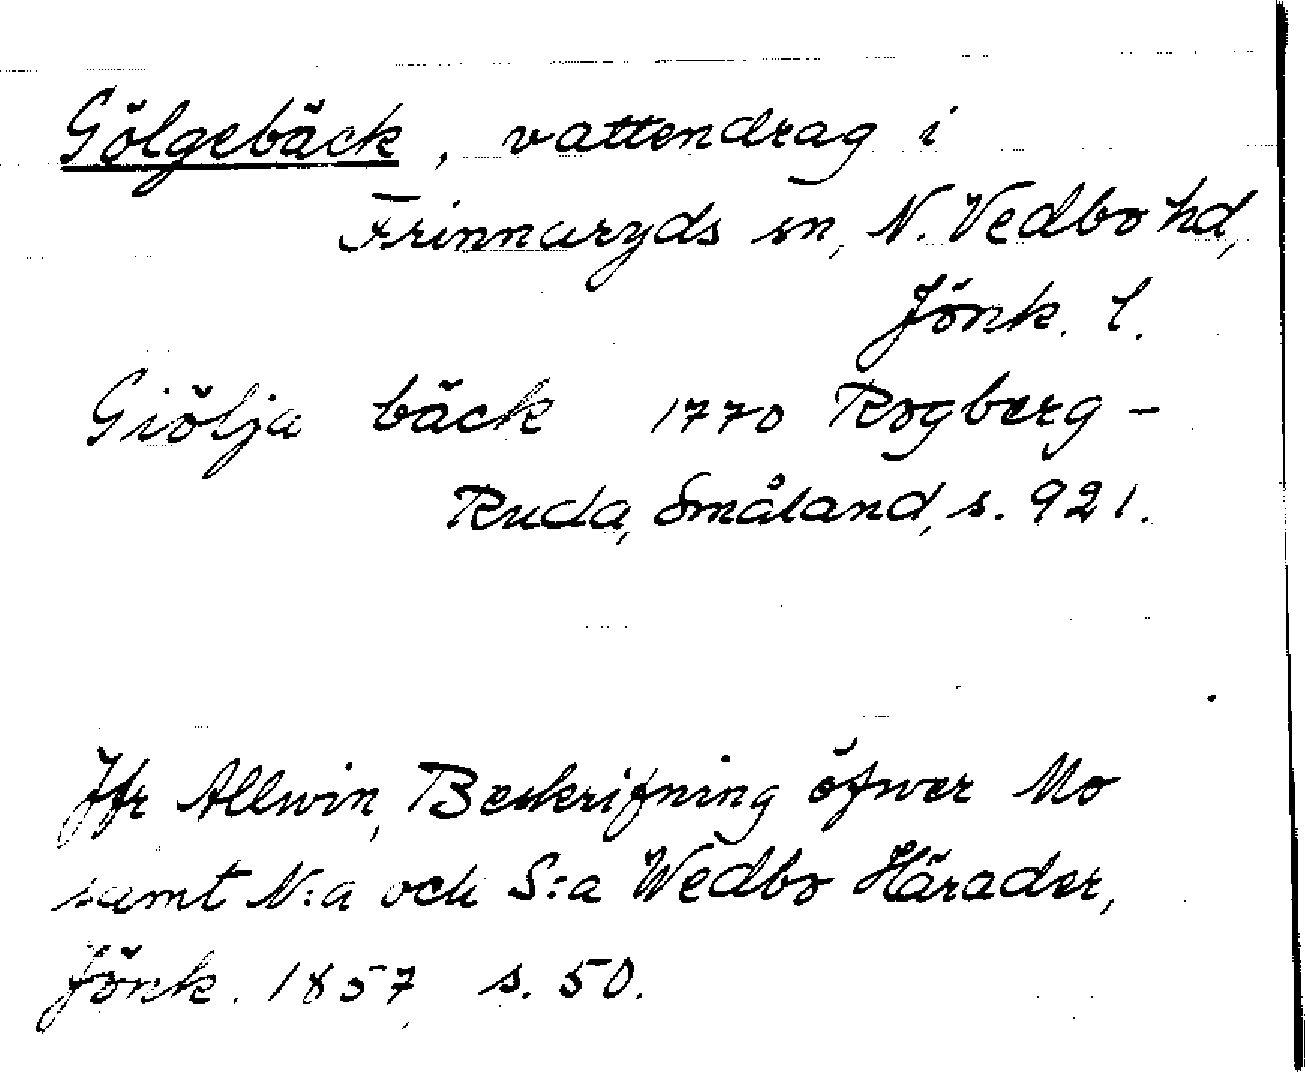 Gölgebäck, vattendrag i
Frinnaryds sn, N. Vedbo hd,
Jönk. l.
Giölja bäck 1770 Rogberg-
Ruda, Småland, s. 921.
Jfr Allwin, Beskrifning öfwer Mo
samt N:a och S:a Wedbo Härader,
Jönk. 1857, s. 50.